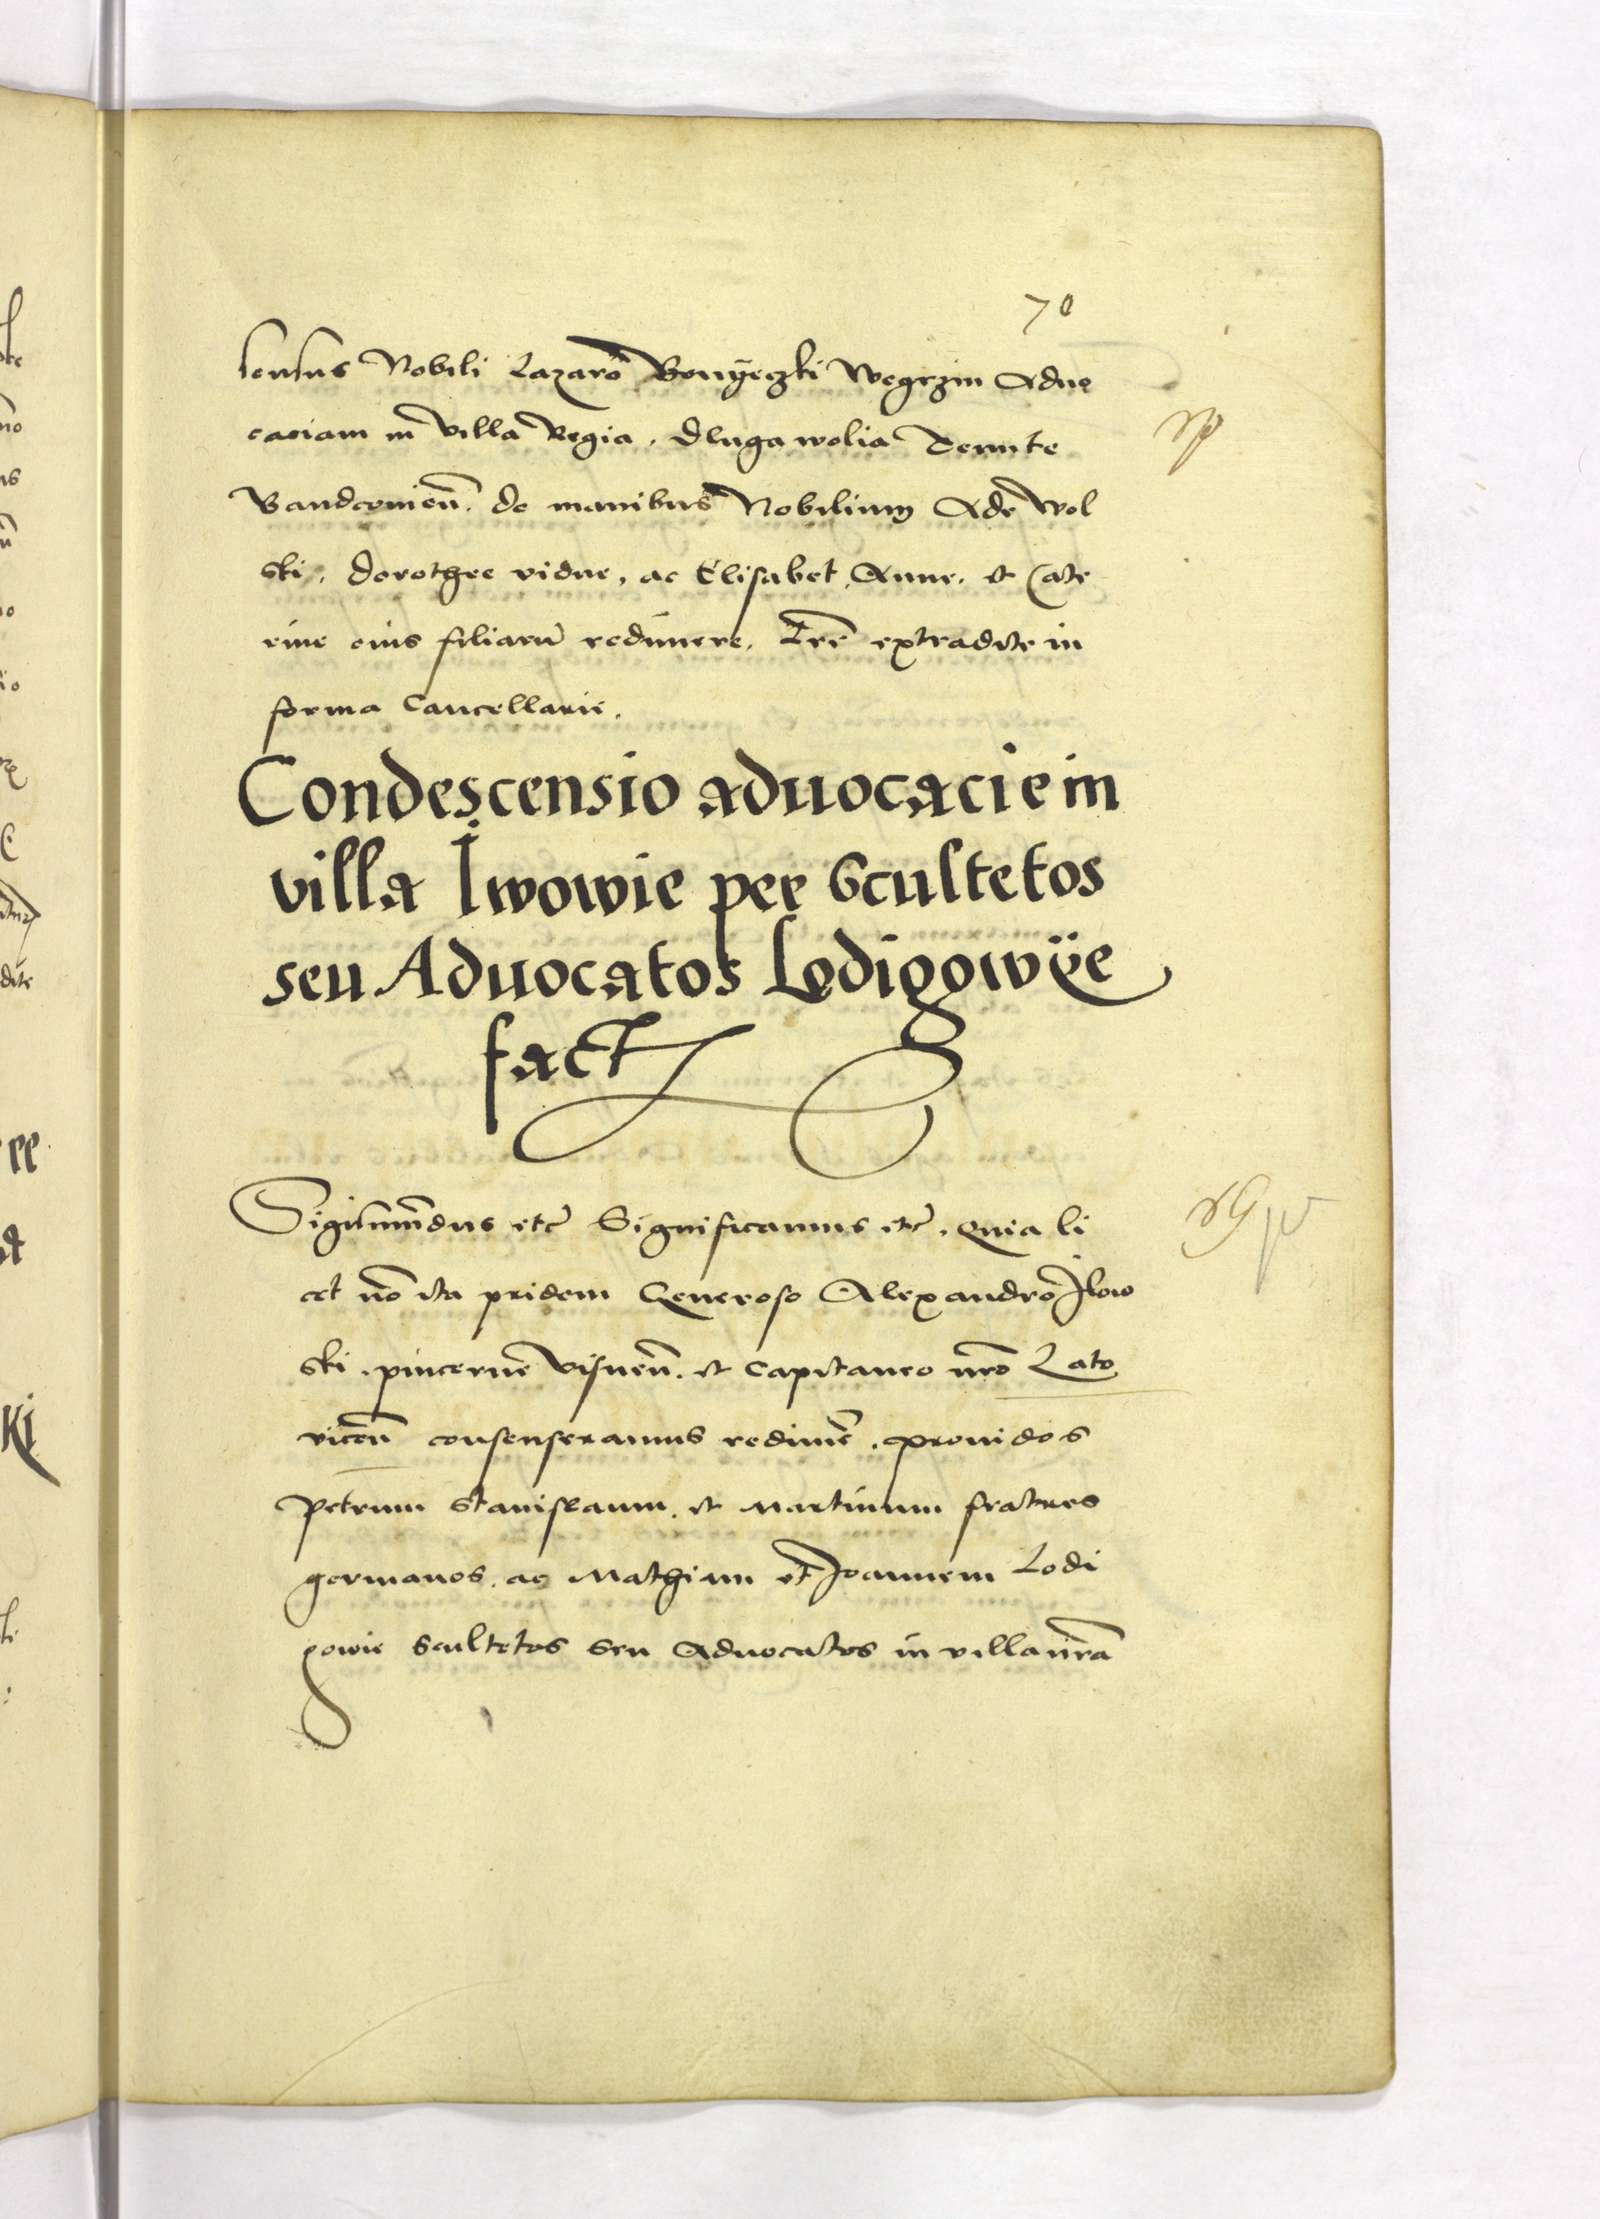 70
sensus Nobili Lazaro Bonyeczki Wegrzin Aduo
caciam in villa Regia. Dluga wolia Tenute
Vandconien. de manibus Nobilium Ade Wol
ski. Dorothee vidue, ac Elisabet, Anne. et Cate
rine eius filiaru redimere. Lre extradite in
forma Cancellarie.
Condescensio aduocacie in
villa Iwowie per Scultetos
seu Aduocatos Lodigowÿe
fact
Sigismundus etc Significamus etc. Quia li
cet no ita pridem Generoso Alexandro Ilow
ski. pincerne Visnen. et Capitaneo nro Lato
vicen consenseramus redime. prouidos
Petrum Stanislaum. et Martinum fratres
germanos. ac Mathiam et Joannem Lodi
gowie scultetos seu Aduocatos in villa nra